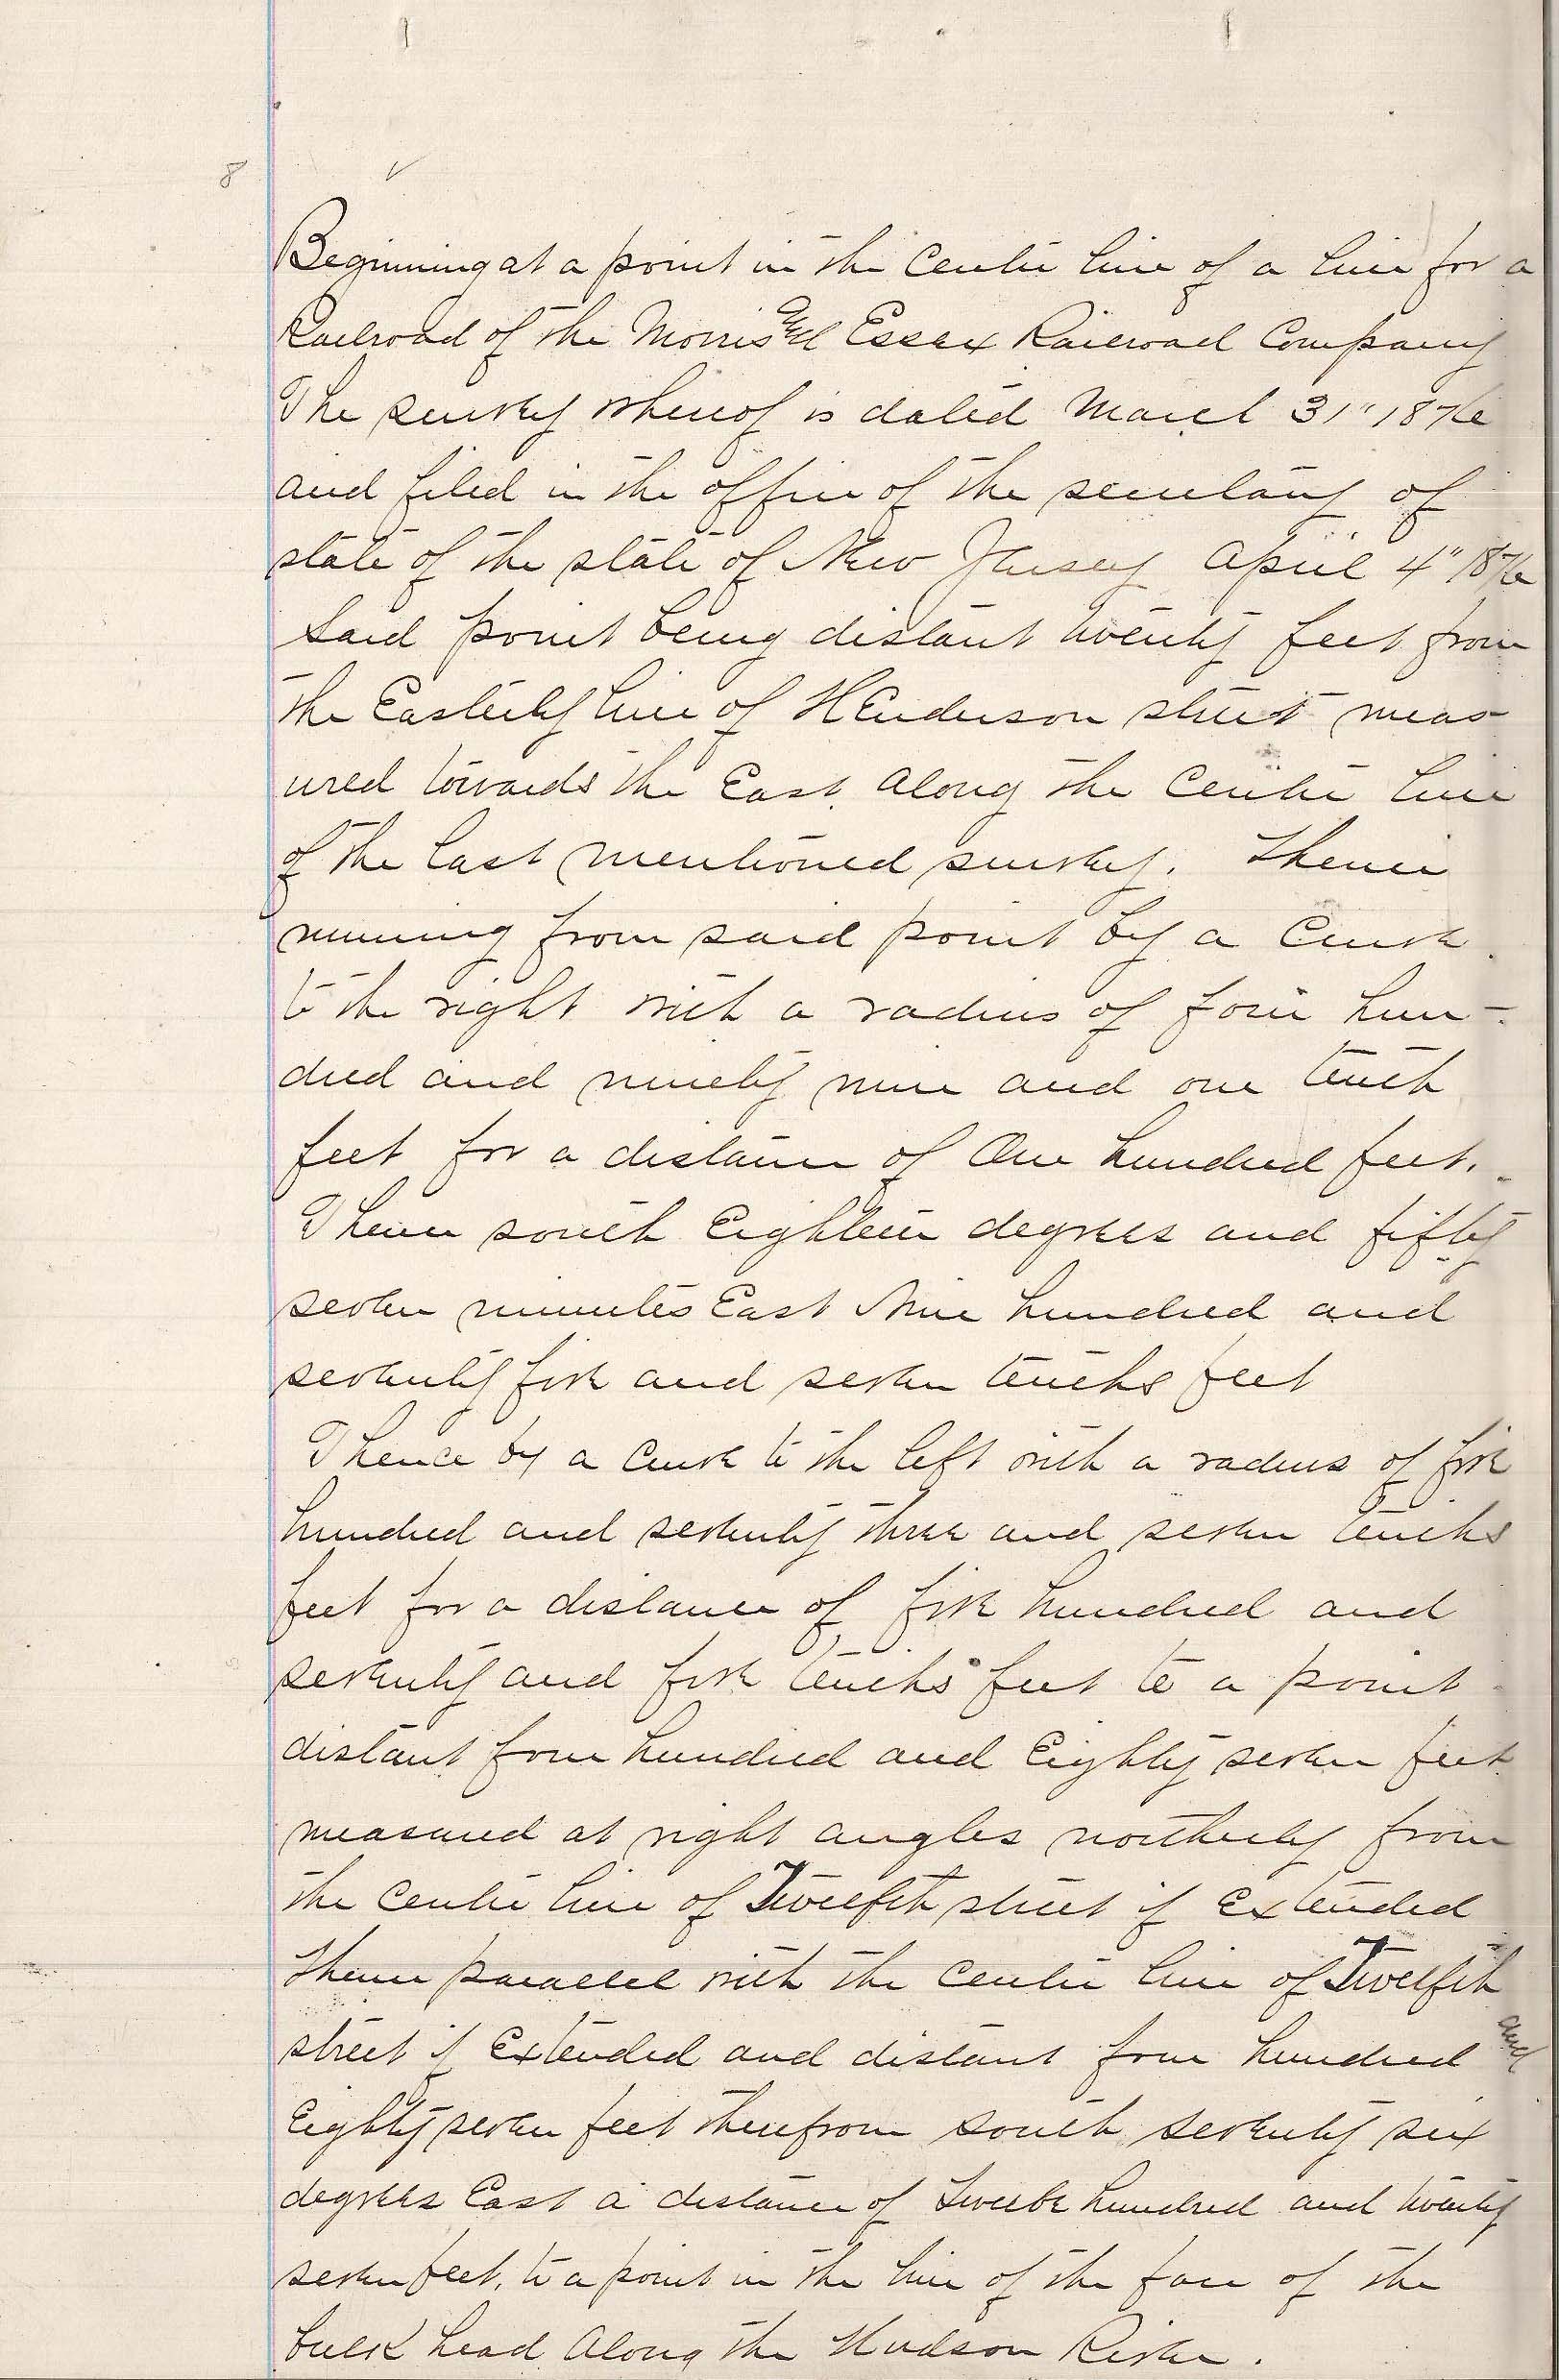 8 ✓
Beginning at a point in the Centre line of a line for a
Railroad of the Morris and Essex Railroad Company
The survey whereof is dated March 31" 1876
and filed in the office of the secretary of
state of the state of New Jersey April 4" 1876
Said point being distant twenty feet from
the Easterly line of HEnderson street meas-
ured towards the East along the Centre line
of the last mentioned survey. Thence
running from said point by a Curve
to the right with a radius of four hun-
dred and ninety nine and one tenth
feet for a distance of One hundred feet.
Thence south Eighteen degrees and fifty
seven minutes East Nine hundred and
seventy five and seven tenths feet
Thence by a Curve to the left with a radius of five
hundred and seventy three and seven tenths
feet for a distance of five hundred and
seventy and five tenths feet to a point
distant four hundred and Eighty seven feet
measured at right angles northerly from
the Centre line of Twelfth street if Extended
Thence parallel with the Centre line of Twelfth
street if Extended and distant four hundred and
Eighty seven feet therefrom south seventy six
degrees East a distance of Twelve hundred and twenty
seven feet, to a point in the line of the face of the
bulk head Along the Hudson River.